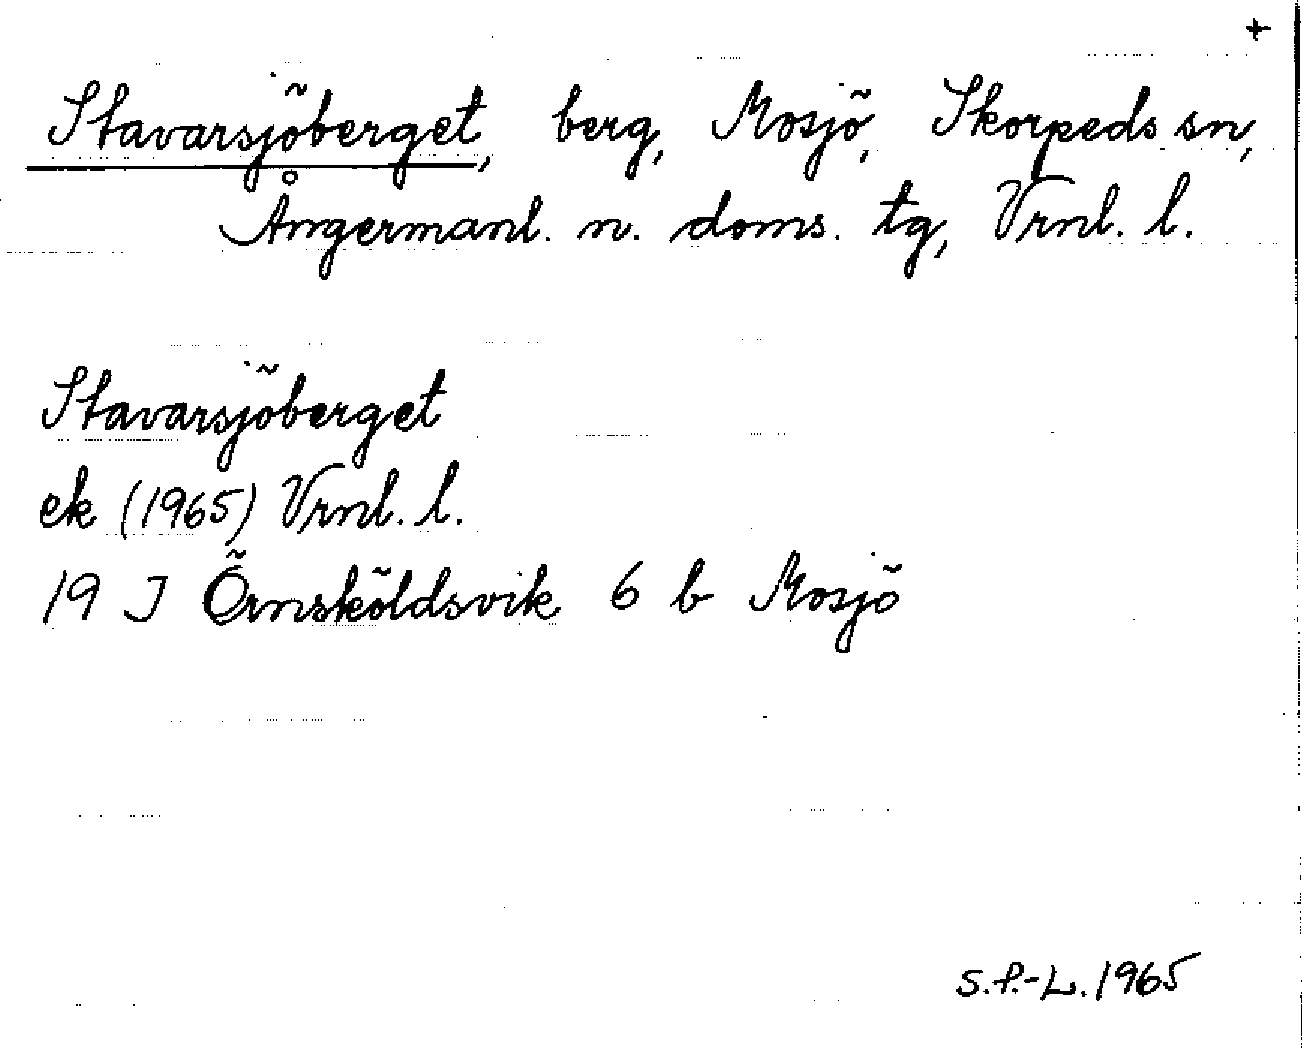 +
Stavarsjöberget, berg, Mosjö, Skorpeds sn,
Ångermanl. n. doms. tg, Vrnl. l.
Stavarsjöberget
ek (1965) Vrnl. l.
19 J Örnsköldsvik 6 b Mosjö
S.P.-L. 1965